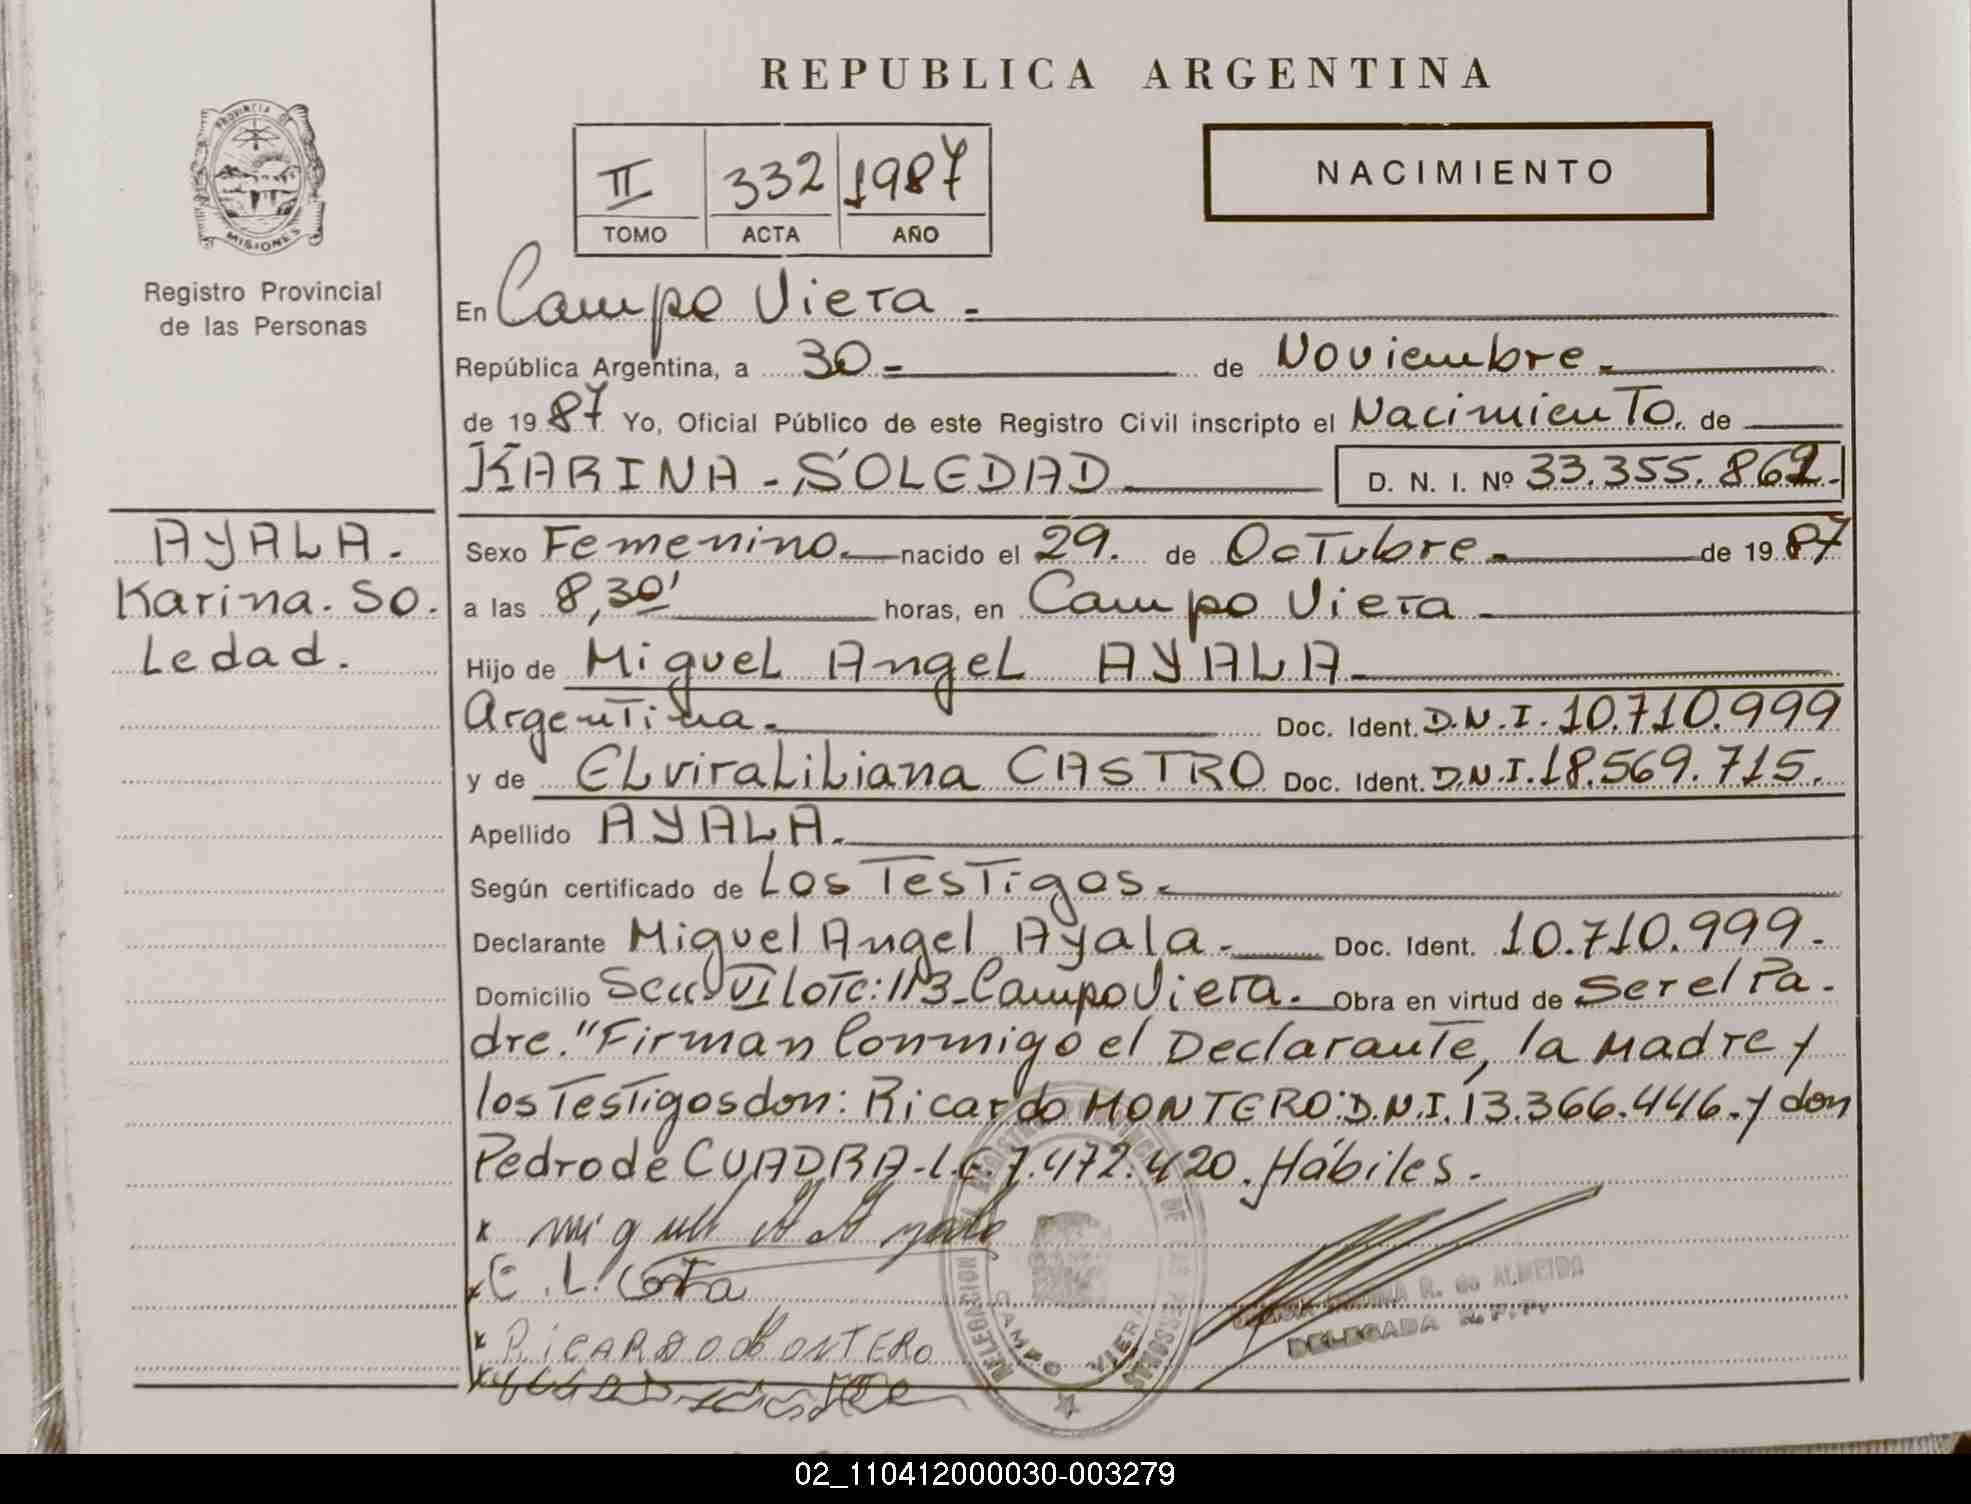 REPUBLICA ARGENTINA
PROVINCIA DE MISIONES
Registro Provincial
de las Personas
II 332 1987
TOMO ACTA AÑO
NACIMIENTO
En Campo Viera.=
República Argentina, a 30.= de Noviembre.
de 1987 Yo, Oficial Público de este Registro Civil inscripto el Nacimiento. de
KARINA-SOLEDAD D. N. I. Nº 33.355.862.-
AYALA.
Karina. So.
Ledad.
Sexo Femenino. nacido el 29. de Octubre. de 1987
a las 8,30' horas, en Campo Viera
Hijo de Miguel Angel AYALA
Argentina. Doc. Ident. D.N.I. 10.710.999
y de Elvira Liliana CASTRO Doc. Ident. D.N.I. 18.569.715.
Apellido AYALA.
Según certificado de Los Testigos.
Declarante Miguel Angel Ayala. Doc. Ident. 10.710.999.
Domicilio Secc. VI Lote: 113-Campo Viera. Obra en virtud de Ser el Pa.
dre. "Firman Conmigo el Declarante, la Madre y
los Testigos don: Ricardo MONTERO: D.N.I. 13.366.446. y don
Pedro de CUADRA-L.E. 7.472.420. Hábiles.
x Miguel A Ayala
x E. L. 
x RICARDO MONTERO
R. de ALMEIDA
DELEGADA R.P.P.
DELEGACION CAMPO VIERA
REGISTRO PROVINCIAL DE LAS PERSONAS
02_110412000030-003279